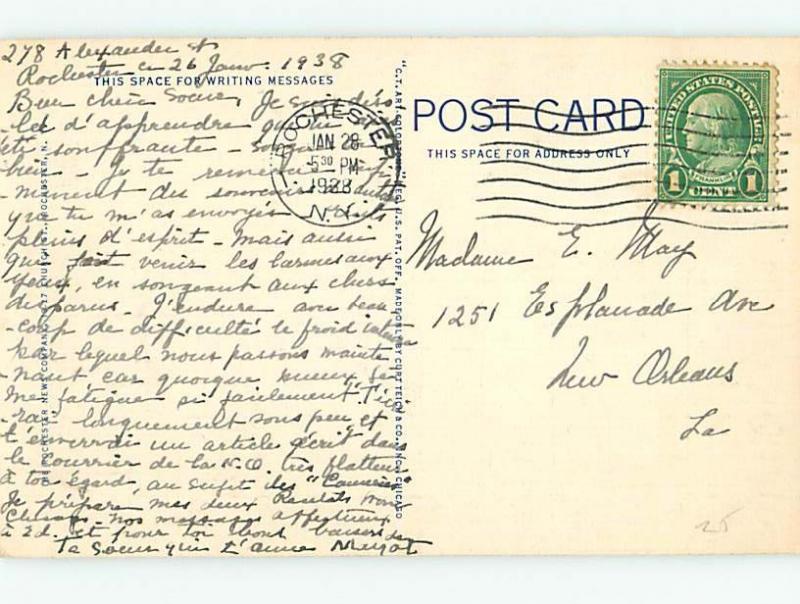 278 Alexander St
Rochester ce 26 Janv. 1938
THIS SPACE FOR WRITING MESSAGES
Bien chère Soeur, Je suis déso
-lée d'apprendre que
été souffrante -
bien - Je te remercie
-ment des souvenirs
que tu m'as envoyés
pleins d'esprit - mais aussi
qui fait venir les larmes aux
yeux, en songeant aux chers
disparus - J'endure avec beau
-coup de difficulté le froid
par lequel nous passons mainte
-nant car quoique mieux je
me fatigue si facilement. T'écri
-rai longuement sous peu et
t'enverrai un article écrit dans
le courrier de la N.O. très flatteur
à ton égard, au sujet des "Causeries"
Je prépare mes deux Recitals
Chicago - nos messages affectueux
à Ed. et pour toi bons baisers de
Ta Soeur qui t'aime
ROCHESTER
JAN 28
5 30 PM
1938
N.Y.
THE ROCHESTER NEWS COMPANY, CHURCH ST., ROCHESTER, N.Y.
"C.T. ART-COLORTONE" REG. U.S. PAT. OFF. MADE ONLY BY CURT TEICH & CO., INC., CHICAGO
POST CARD
THIS SPACE FOR ADDRESS ONLY
UNITED STATES POSTAGE
FRANKLIN
1 CENT 1
Madame E. May
1251 Esplanade Ave
New Orleans
La
25